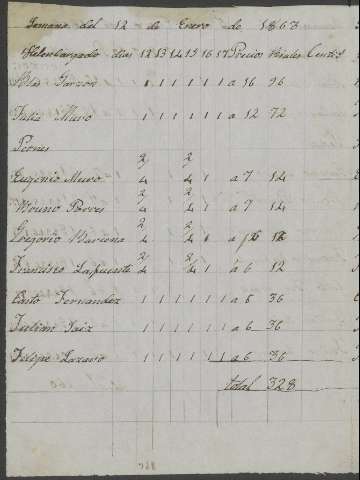 Semana del 12 de Enero de 1863
dias 12 13 14 15 16 17 Precios Reales Cents
Blas Garzon 1 1 1 1 1 1 a 16 96
Julian Muro 1 1 1 1 1 1 a 12 72
Peones
Eugenio Muro 2/4 2/4 1 a 7 14
Bruno Porres 2/4 2/4 1 a 7 14
Gregorio Mariona 2/4 2/4 1 a 6 12
Francisco Lafuente 2/4 2/4 1 a 6 12
Casto Fernandez 1 1 1 1 1 1 a 6 36
Julian Saiz 1 1 1 1 1 1 a 6 36
Felipe Lazaro 1 1 1 1 1 1 a 6 36
total 328